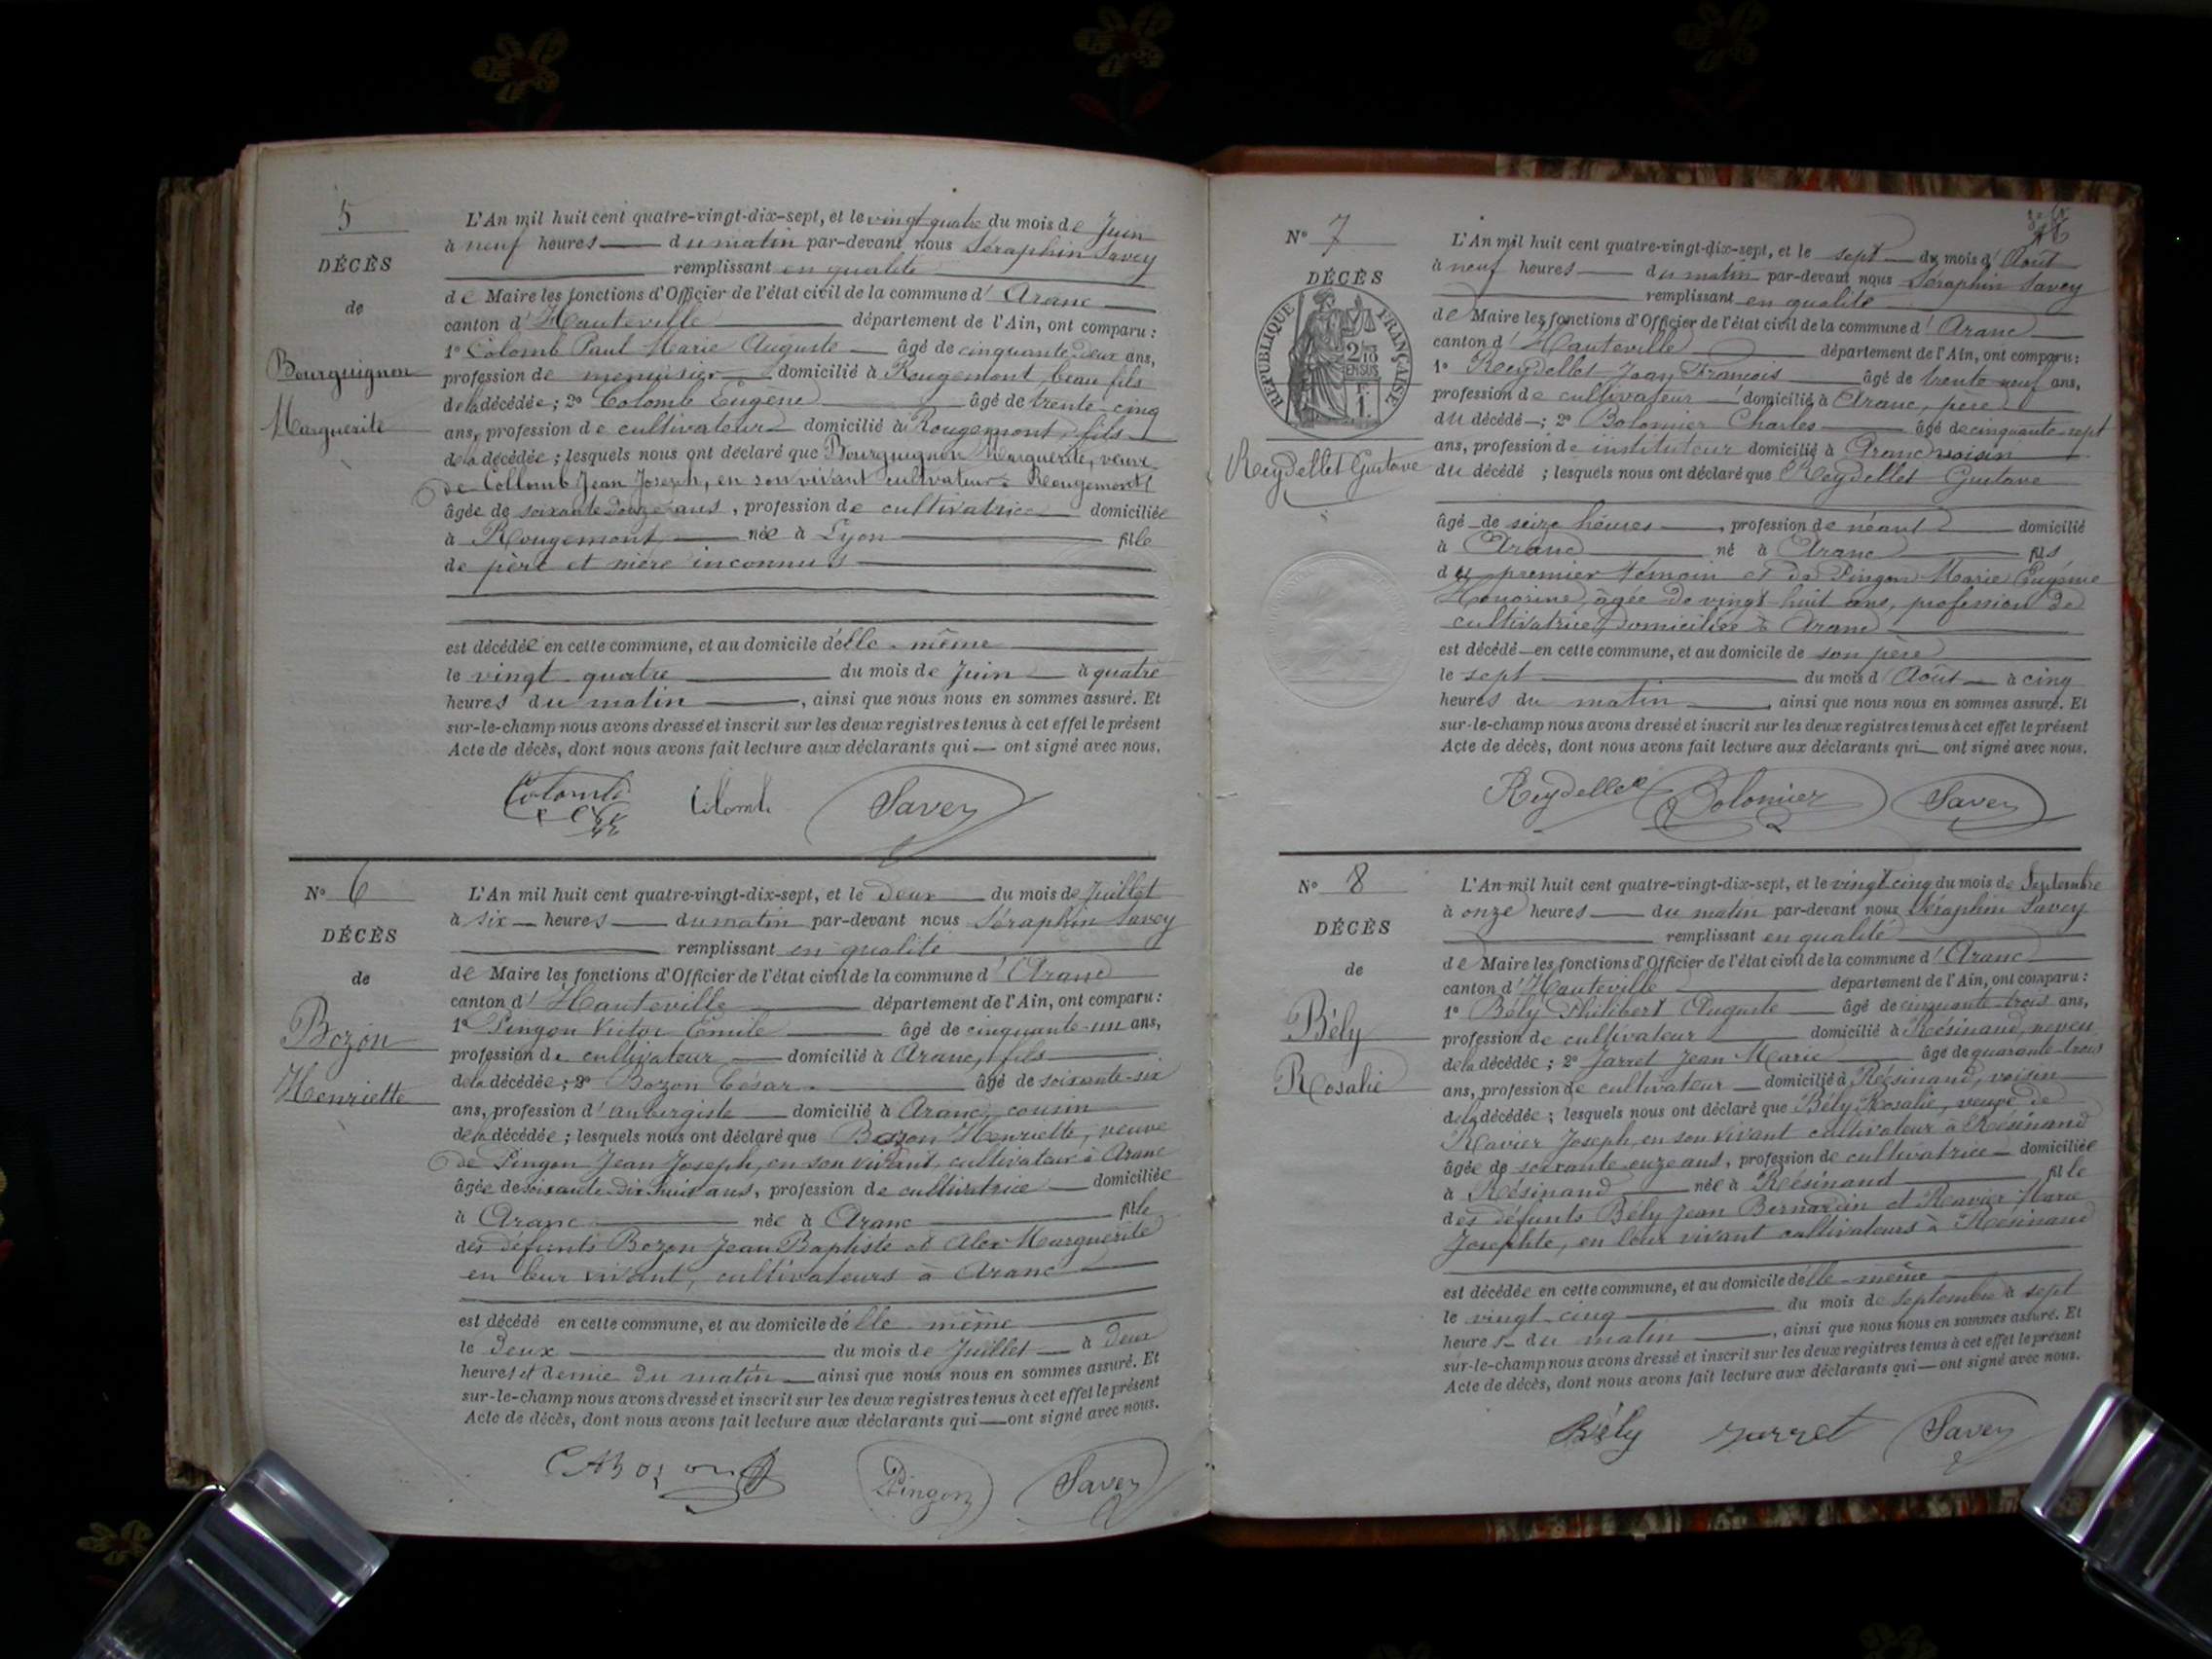 5
DÉCÈS
de
Bourguignon
Marguerite
L'An mil huit cent quatre-vingt-dix-sept, et le vingt quatre du mois de Juin
à neuf heures du matin par-devant nous Séraphin Savey
remplissant en qualité
de Maire les fonctions d'Officier de l'état civil de la commune d'Aranc
canton d'Hauteville département de l'Ain, ont comparu :
1° Colomb Paul Marie Auguste âgé de cinquante deux ans,
profession de menuisier domicilié à Rougemont, beau fils
de la décédée ; 2° Colomb Eugène âgé de trente-cinq
ans, profession de cultivateur domicilié à Rougemont, fils
de la décédée ; lesquels nous ont déclaré que Bourguignon Marguerite, veuve
de Collomb Jean Joseph, en son vivant cultivateur à Rougemont
âgée de soixante douze ans, profession de cultivatrice domiciliée
à Rougemont née à Lyon fille
de père et mère inconnus
est décédée en cette commune, et au domicile d'elle-même
le vingt-quatre du mois de Juin à quatre
heures du matin, ainsi que nous nous en sommes assuré. Et
sur-le-champ nous avons dressé et inscrit sur les deux registres tenus à cet effet le présent
Acte de décès, dont nous avons fait lecture aux déclarants qui — ont signé avec nous.
Colomb Colomb Savey
N° 6
DÉCÈS
de
Bozon
Henriette
L'An mil huit cent quatre-vingt-dix-sept, et le deux du mois de Juillet
à six heures du matin par-devant nous Séraphin Savey
remplissant en qualité
de Maire les fonctions d'Officier de l'état civil de la commune d'Aranc
canton d'Hauteville département de l'Ain, ont comparu :
1° Pingon Victor Emile âgé de cinquante-un ans,
profession de cultivateur domicilié à Aranc, fils
de la décédée ; 2° Bozon César âgé de soixante-six
ans, profession d'aubergiste domicilié à Aranc, cousin
de la décédée ; lesquels nous ont déclaré que Bozon Henriette, veuve
de Pingon Jean Joseph, en son vivant, cultivateur à Aranc
âgée de soixante-dix-huit ans, profession de cultivatrice domiciliée
à Aranc née à Aranc fille
des défunts Bozon Jean Baptiste et Alex Marguerite
en leur vivant, cultivateurs à Aranc
est décédé en cette commune, et au domicile d'elle-même
le deux du mois de Juillet à deux
heures et demie du matin ainsi que nous nous en sommes assuré. Et
sur-le-champ nous avons dressé et inscrit sur les deux registres tenus à cet effet le présent
Acte de décès, dont nous avons fait lecture aux déclarants qui — ont signé avec nous.
Bozon Pingon Savey
N° 7
DÉCÈS
RÉPUBLIQUE FRANÇAISE
2/10 EN SUS
1 F.
Reydellet Gustave
L'An mil huit cent quatre-vingt-dix-sept, et le sept du mois d'Août
à neuf heures du matin par-devant nous Séraphin Savey
remplissant en qualité
de Maire les fonctions d'Officier de l'état civil de la commune d'Aranc
canton d'Hauteville département de l'Ain, ont comparu :
1° Reydellet Jean François âgé de trente neuf ans,
profession de cultivateur domicilié à Aranc, père
du décédé — ; 2° Bolomier Charles âgé de cinquante-sept
ans, profession de instituteur domicilié à Aranc voisin
du décédé ; lesquels nous ont déclaré que Reydellet Gustave
âgé de seize heures, profession de néant domicilié
à Aranc né à Aranc fils
du premier témoin et de Pingon Marie Eugénie
Honorine, âgée de vingt-huit ans, profession de
cultivatrice, domiciliée à Aranc
est décédé — en cette commune, et au domicile de son père
le sept du mois d'Août à cinq
heures du matin, ainsi que nous nous en sommes assuré. Et
sur-le-champ nous avons dressé et inscrit sur les deux registres tenus à cet effet le présent
Acte de décès, dont nous avons fait lecture aux déclarants qui — ont signé avec nous.
Reydellet Bolomier Savey
N° 8
DÉCÈS
de
Bély
Rosalie
L'An mil huit cent quatre-vingt-dix-sept, et le vingt cinq du mois de Septembre
à onze heures du matin par-devant nous Séraphin Savey
remplissant en qualité
de Maire les fonctions d'Officier de l'état civil de la commune d'Aranc
canton d'Hauteville département de l'Ain, ont comparu :
1° Bély Philibert Auguste âgé de cinquante-trois ans,
profession de cultivateur domicilié à Résinand, neveu
de la décédée ; 2° Jarret Jean Marie âgé de quarante-trois
ans, profession de cultivateur domicilié à Résinand, voisin
de la décédée ; lesquels nous ont déclaré que Bély Rosalie, veuve de
Ravier Joseph, en son vivant cultivateur à Résinand
âgée de soixante onze ans, profession de cultivatrice domiciliée
à Résinand née à Résinand fille
des défunts Bély Jean Bernardin et Ravier Marie
Josephte, en leur vivant cultivateurs à Résinand
est décédée en cette commune, et au domicile d'elle-même
le vingt cinq du mois de Septembre à sept
heures du matin, ainsi que nous nous en sommes assuré. Et
sur-le-champ nous avons dressé et inscrit sur les deux registres tenus à cet effet le présent
Acte de décès, dont nous avons fait lecture aux déclarants qui — ont signé avec nous.
Bély Jarret Savey